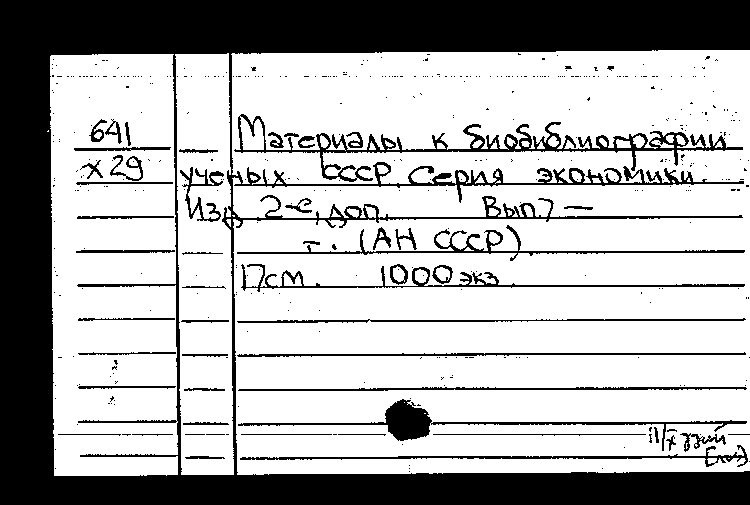 641
х 29
Материалы к биобиблиографии
ученых СССР. Серия экономики.
Изд. 2-е, доп. Вып. 7 —
т. (АН СССР).
17см. 1000 экз.
11/X